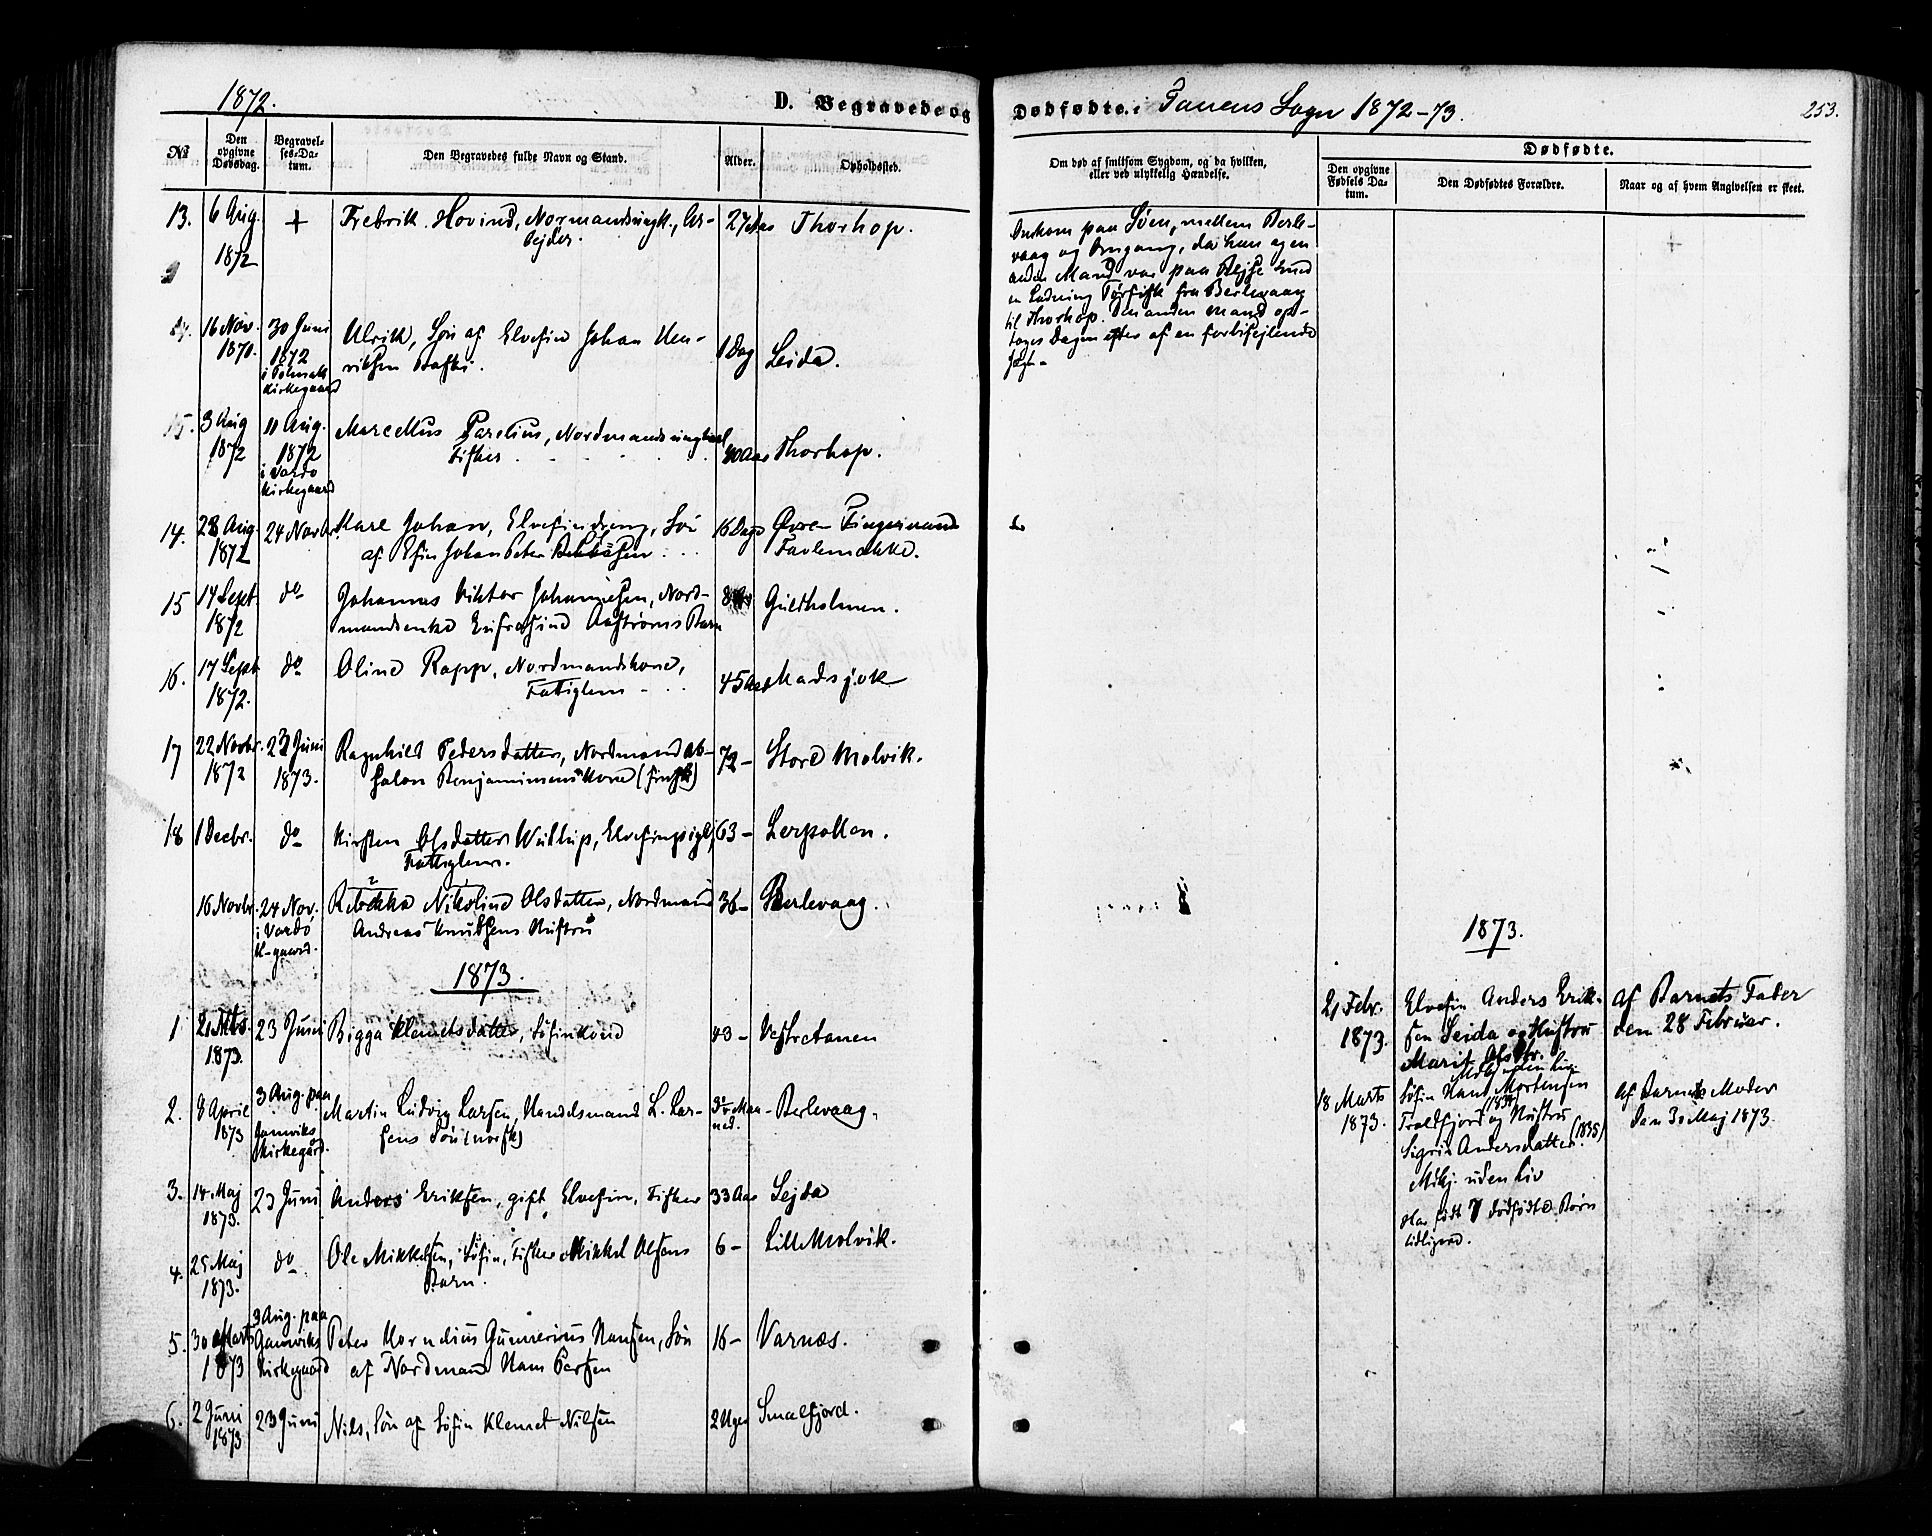 1872.
D. Begravede og
Dødfødte. Tanens Sogn 1872-73.
253.
No
Den opgivne Dødsdag.
Begravelses-Datum.
Den Begravedes fulde Navn og Stand.
Alder.
Opholdssted.
Om død af smitsom Sygdom, og da hvilken,
eller ved ulykkelig Hændelse.
Dødfødte.
Den opgivne Fødsels Datum.
Den Dødfødtes Forældre.
Naar og af hvem Angivelsen er skeet.
13. 6 Aug. 1872 + Fredrik Hovind, Normandsungk., Ar-
bejder. 27 Aar Thorhop.
Omkom paa Søen, mellem Berle-
vaag og Omgang, da han og en
anden Mand var paa Rejse med
en Ladning Tørfisk fra Berlevaag
til Thorhop. Den anden Mand op-
toges Dagen efter af en forbisejlende
Jægt-
16 Nov. 1870. 30 Juni 1872 i Polmak Kirkegaard
Ulrik, Søn af Elvefin Johan Hen-
riksen 1 Dag Seida.
15. 3 Aug 1872 11 Aug. 1872 i Vardø Kirkegaard
Marcellus Parelius, Nordmandsungkarl
Fisker 40 Aar Thorhop.
14. 28 Aug. 1872 24 Novbr. Karl Johan, Elvefindreng, Søn
af Efin Johan Peter 16 Dage Øvre Fingervand
15 14 Sept. 1872 do Johannes Viktor Johannesen, Nord-
mandsenke Eufrosine Aastrøms Barn 8 Guldholmen.
16. 17 Sept 1872. do Oline Rapp, Nordmandskone,
Fattiglem 45 Aar Madsjok
17 22 Novbr. 1872 23 Juni 1873. Ragnhild Pedersdatter, Nordmand Ab-
salon Benjaminsens Kone 72- Store Molvik.
18 1 Decbr. do Kirsten Olsdatter Elvefinpige,
Fattiglem. 63- Lerpollen.
16 Novbr. 24 Nov. i Vardø K-gaard. Rebekka Nikoline Olsdatter, Nordmand
Andreas Knudsens Hustru 36- Berlevaag.
1873.
1 21 Mts. 1873. 23 Juni Bigga Klemetsdatter, Søfinkone 43- Vestretanen
2. 8 April 1873 3 Aug. paa Gamviks Kirkegård. Martin Ludvig Larsen, Handelsmand L. Lar-
sens Søn (norsk) Maaned. Berlevaag.
3. 14 Maj 1873. 23 Juni Anders Eriksen, gift, Elvefin, Fisker 33 Aar Sejda
4. 25 Maj 1873. do Ole Mikkelsen, Søfin, Fisker Mikkel Olsens
Barn. 6- Lille Molvik.
5. 30 Marts 1873 3 Aug. paa Gamviks Kirkegaard Peter Kornelius Gunnerius Hansen, Søn
af Nordmand Hans Persen 16- Varnæs.
6. 2 Juni 1873 23 Juni Nils, Søn af Søfin Klemet Nilsen 2 Uger Smalfjord.
1873.
21 Febr. 1873. Elvefin Anders Erik-
sen Seida og Hustru
Marit Olsdtr.
Af Barnets Fader
den 28 Februar.
18 Marts 1873. Søfin Hans Mortensen
Troldfjord og Hustru
Sigrid Andersdatter (1835)
Mkj. uden Liv
Har født 7 dødfødte Børn
tidligere.
Af Barnets Moder
den 30 Maj 1873.